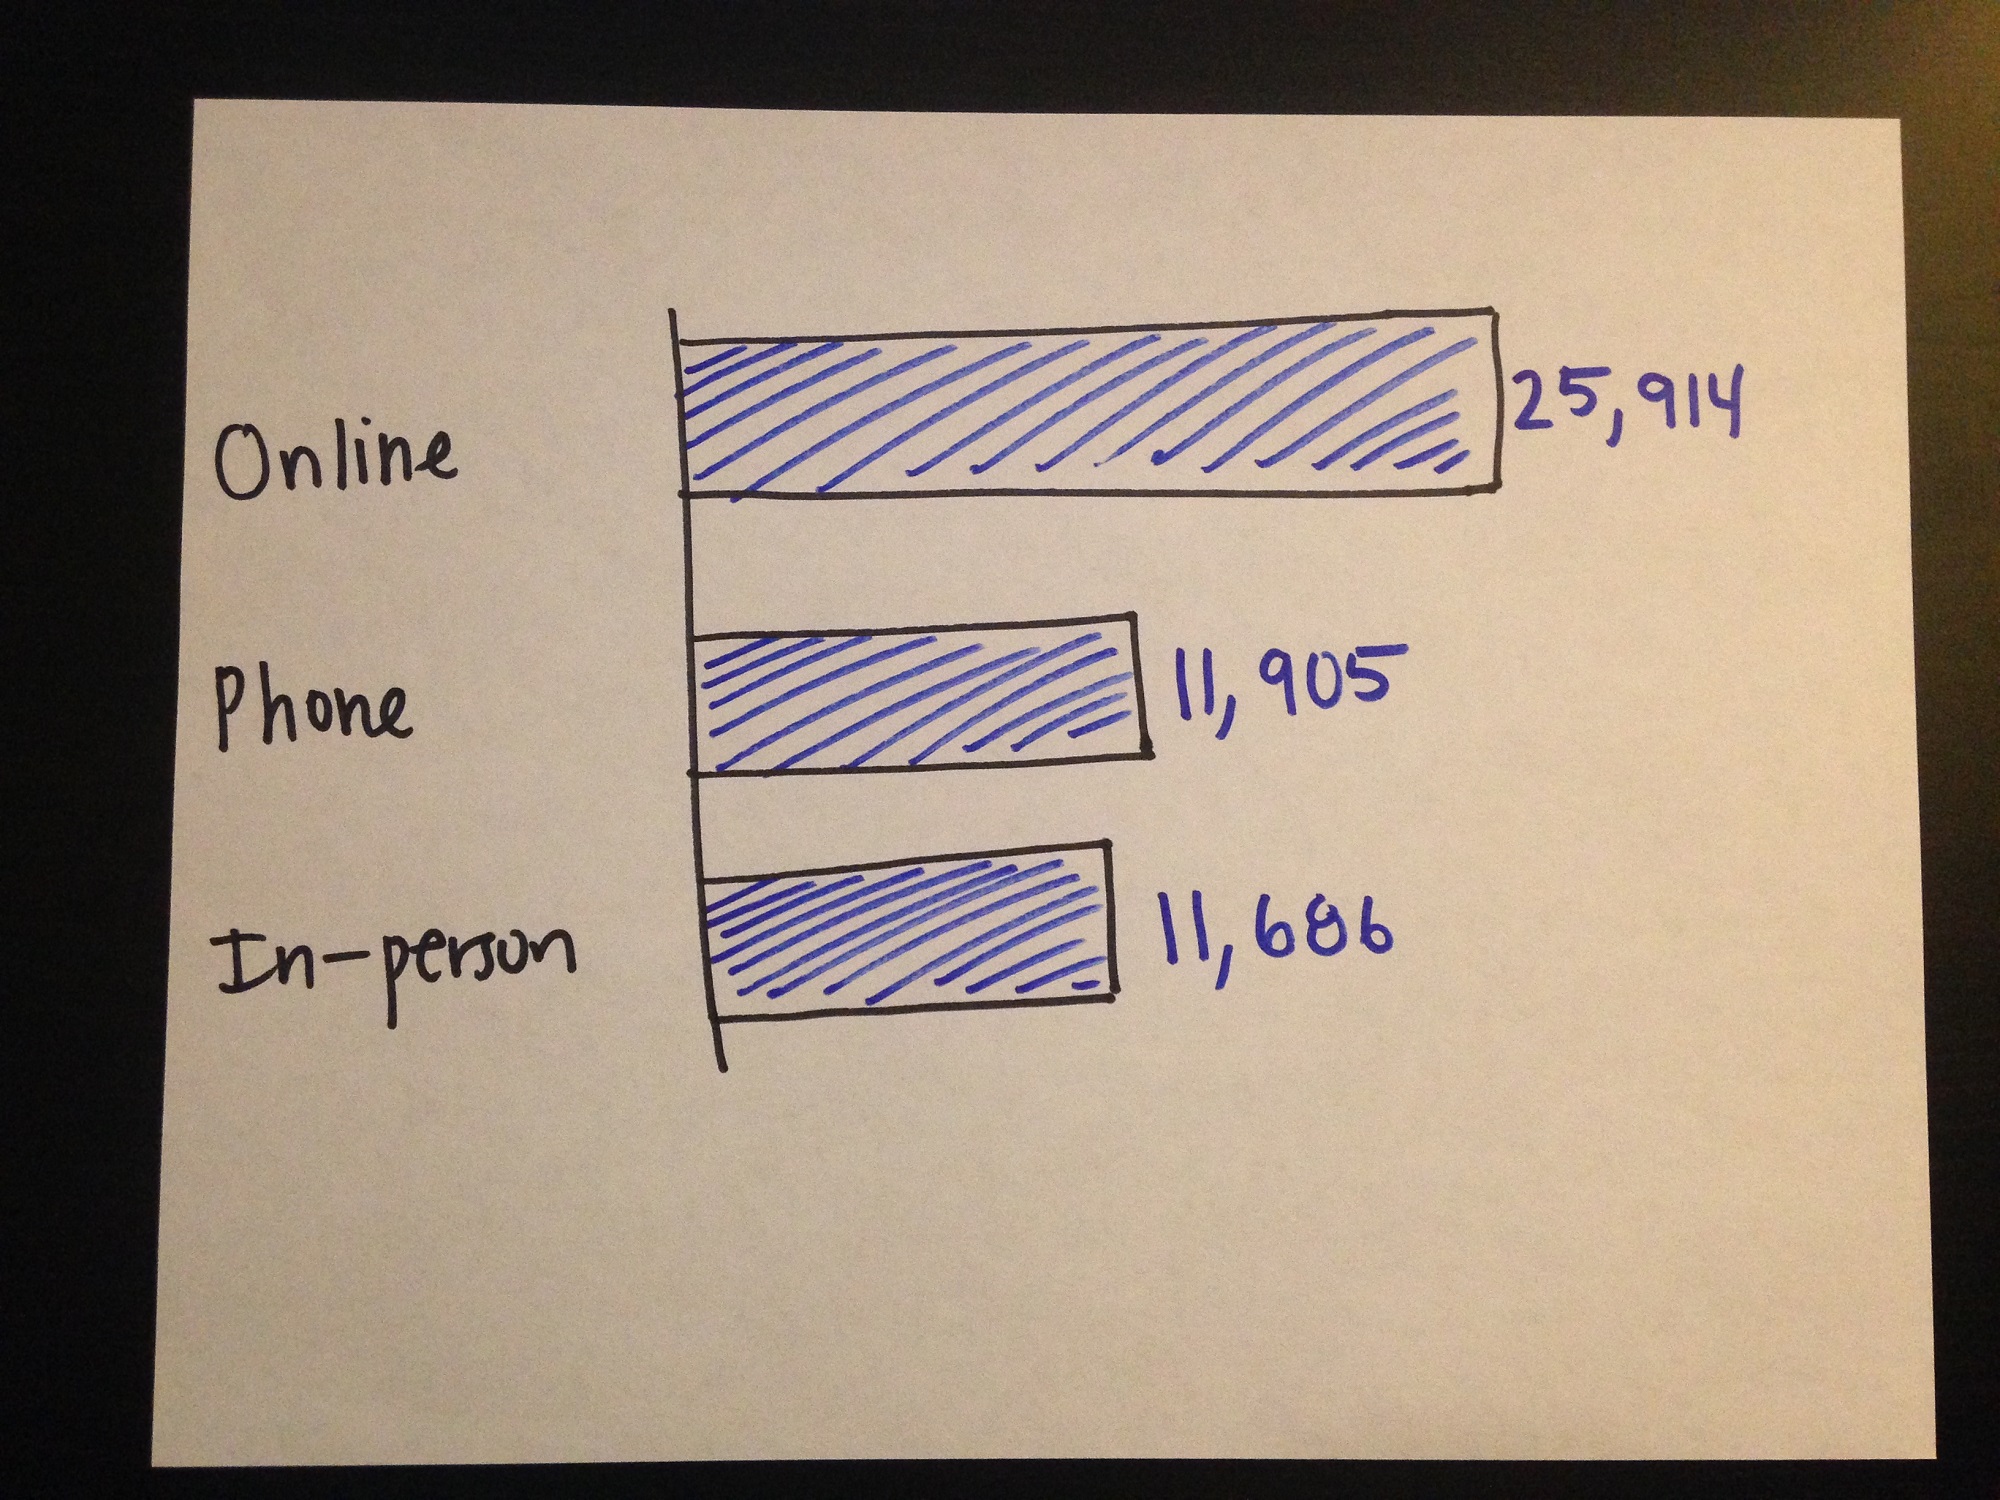 Online 25,914
Phone 11,905
In-person 11,686